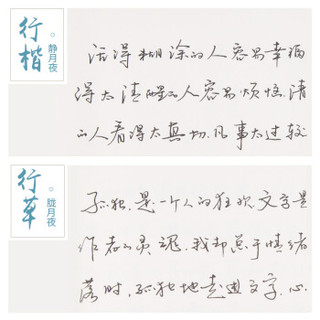 行楷
静月夜
活得糊涂的人容易幸福
得太清醒的人容易烦恼.清
的人看得太真切.凡事太过较
行草
胧月夜
孤独.是一个人的狂欢.文字是
作者的灵魂.我却总于情绪
落时.孤独地走进文字.心